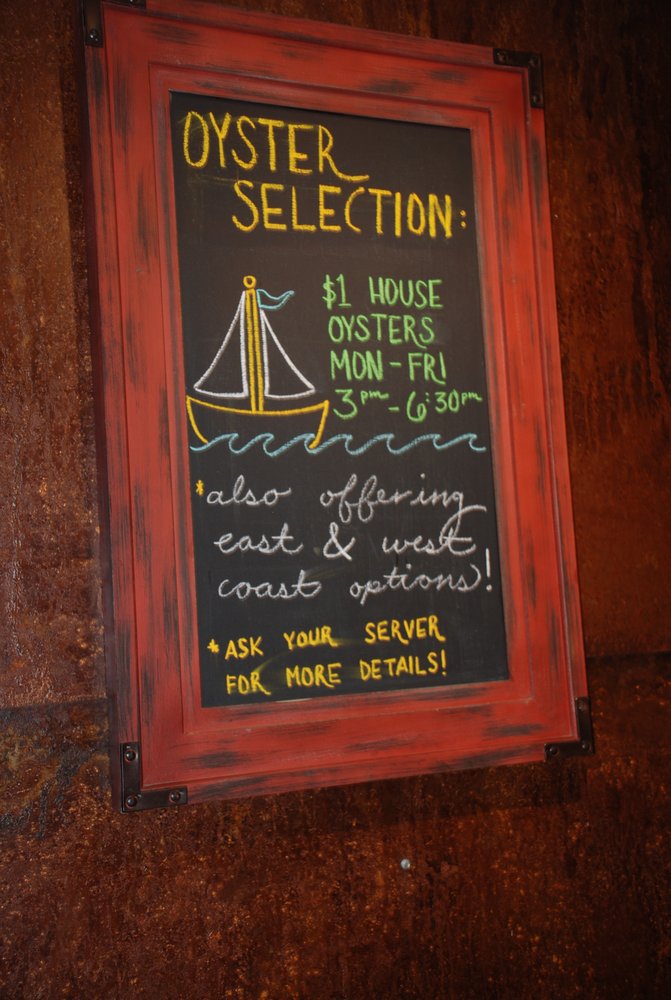 OYSTER
SELECTION:
$1 HOUSE
OYSTERS
MON-FRI
3pm-6:30pm
*also offering
east & west
coast options!
*ASK YOUR SERVER
FOR MORE DETAILS!